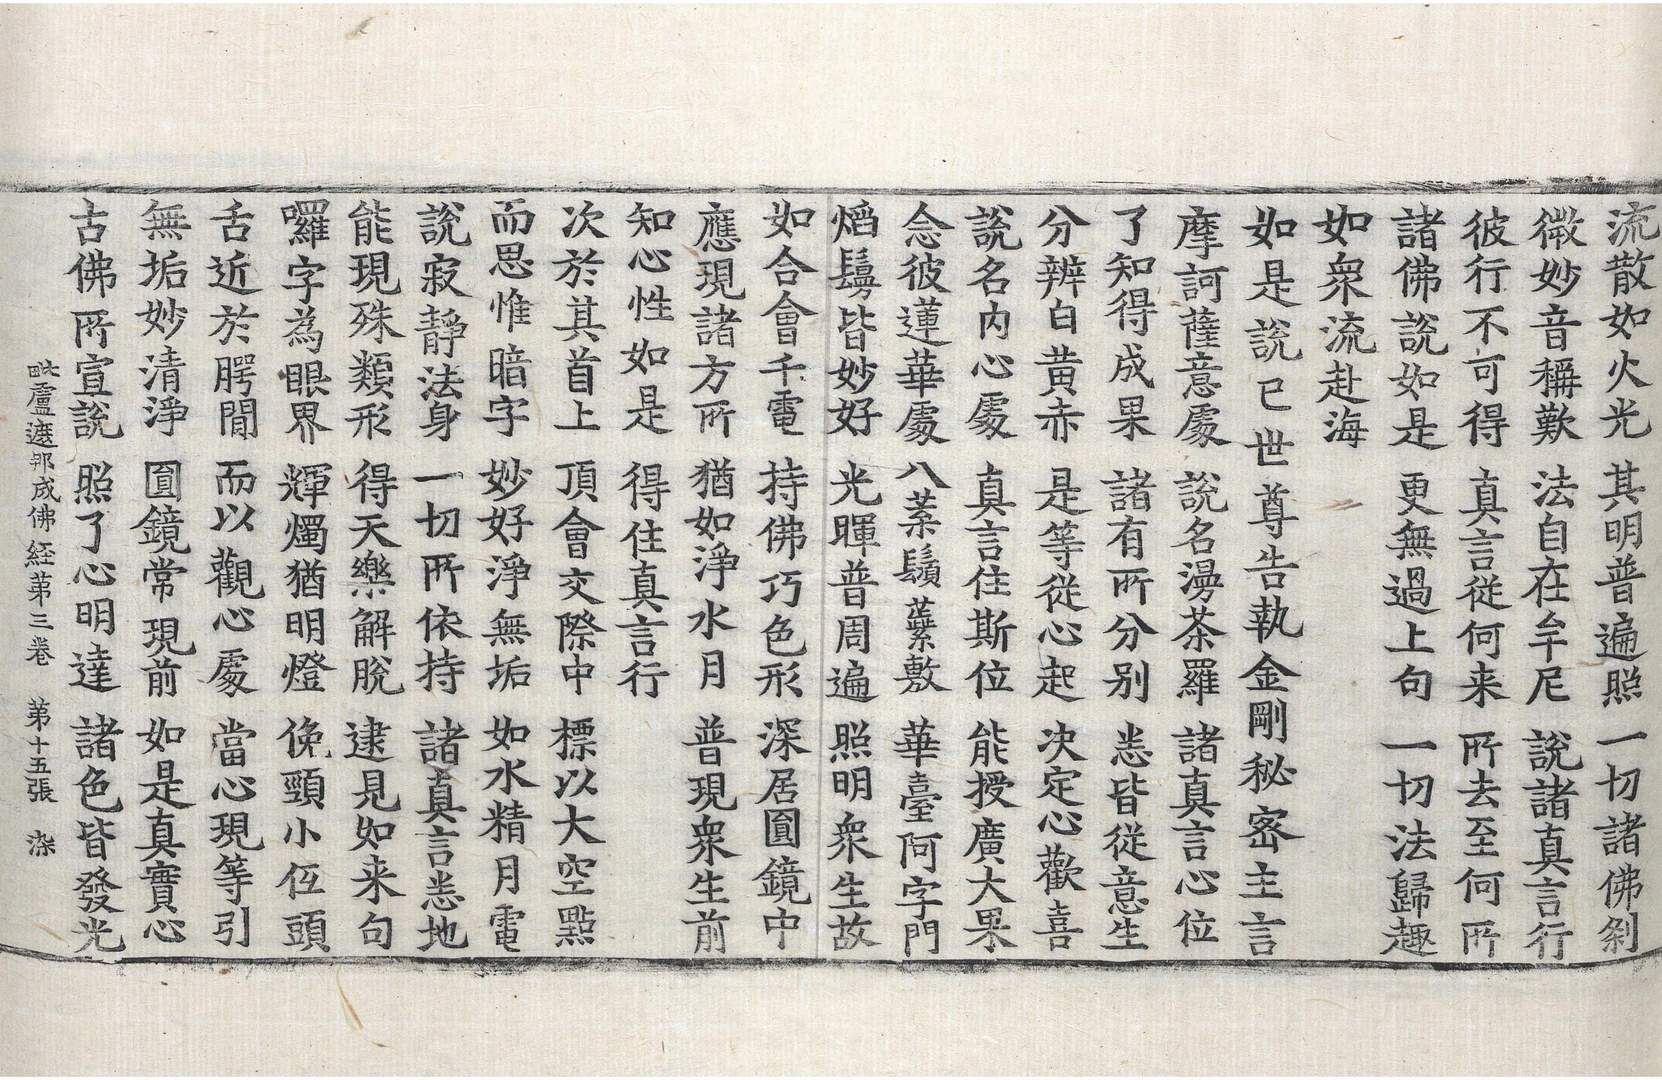 流散如火光　其明普遍照　一切諸佛刹
微妙音稱歎　法自在牟尼　說諸真言行
彼行不可得　真言從何来　所去至何所
諸佛說如是　更無過上句　一切法歸趣
如衆流赴海
如是說已世尊告執金剛秘密主言
摩訶薩意處　說名漫茶羅　諸真言心位
了知得成果　諸有所分別　悉皆從意生
分辨白黄赤　是等從心起　决定心歡喜
說名内心處　真言住斯位　能授廣大果
念彼蓮華處　八葉鬚蘂敷　華臺阿字門
焰鬘皆妙好　光暉普周遍　照明衆生故
如合會千電　持佛巧色形　深居圓鏡中
應現諸方所　猶如淨水月　普現衆生前
知心性如是　得住真言行
次於其首上　頂會交際中　標以大空點
而思惟暗字　妙好淨無垢　如水精月電
說寂靜法身　一切所依持　諸真言悉地
能現殊類形　得天樂解脫　逮見如来句
囉字為眼界　輝燭猶明燈　俛頸小伍頭
舌近於腭間　而以觀心處　當心現等引
無垢妙清淨　圓鏡常現前　如是真實心
古佛所宣說　照了心明達　諸色皆發光
毗盧遮那成佛経第三巻　第十五張　染